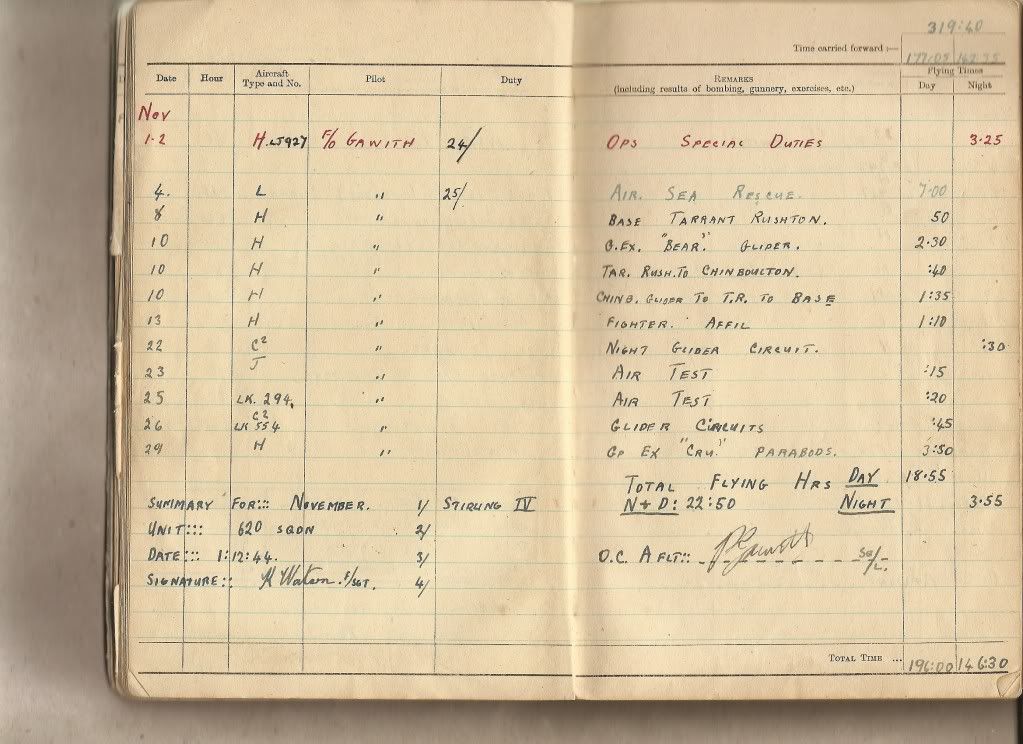 319:40
Time carried forward :—
177:05 142:35
Date Hour Aircraft Type and No. Pilot Duty REMARKS (including results of bombing, gunnery, exercises, etc.) Flying Times Day Night
Nov
1-2 H. LJ927 F/O GAWITH 24/ OPS SPECIAL DUTIES 3.25
4. L " 25/ AIR. SEA RESCUE. 7.00
8 H " BASE TARRANT RUSHTON. 50
10 H " G.EX. "BEAR." GLIDER. 2.30
10 H " TAR. RUSH. TO CHINBOULTON. :40
10 H " CHINB. GLIDER TO T.R. TO BASE 1:35
13 H " FIGHTER. AFFIL 1:10
22 C2 " NIGHT GLIDER CIRCUIT. :30
23 J " AIR TEST :15
25 LK. 294. " AIR TEST :20
26 C2 LK 554 " GLIDER CIRCUITS :45
29 H " GP EX "CRU" PARABODS. 3:50
TOTAL FLYING HRS DAY 18.55
SUMMARY FOR::: NOVEMBER. 1/ STIRLING IV N+D: 22:50 NIGHT 3.55
UNIT::: 620 SQDN 2/
DATE::: 1:12:44. 3/ O.C. A FLT:: S/L.
SIGNATURE:: H Watson. F/SGT. 4/
TOTAL TIME ... 196:00 146:30